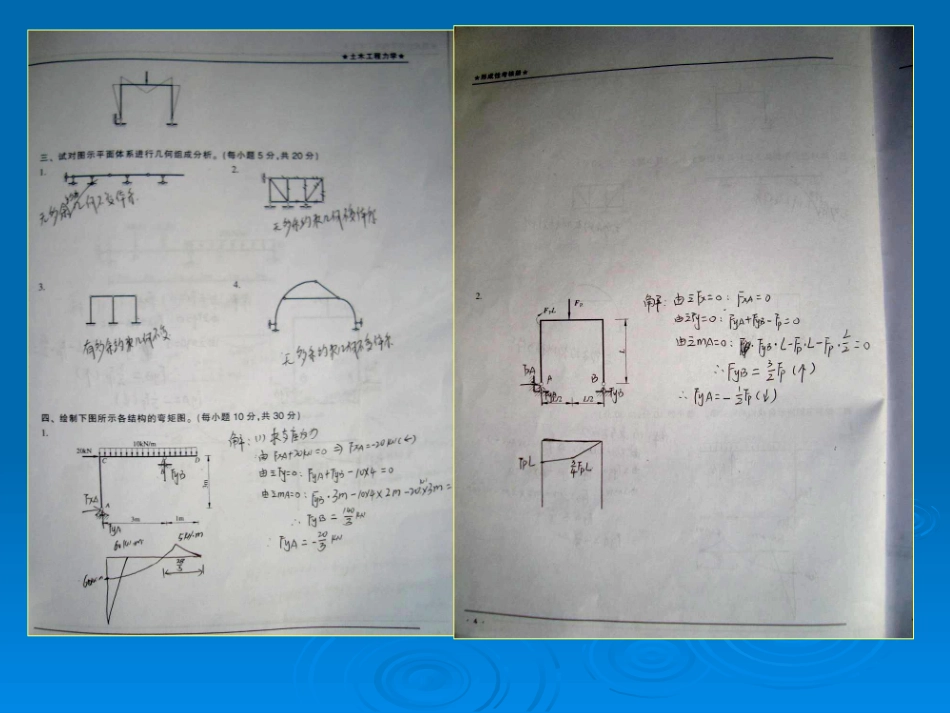 ★土木工程力学★
三、试对图示平面体系进行几何组成分析。(每小题5分,共20分)
1.
2.
无多余约束几何不变体系
无多余约束几何不变体系
3.
4.
有多余约束几何不变
无多余约束几何不变体系
四、绘制下图所示各结构的弯矩图。(每小题10分,共30分)
1.
20kN
10kN/m
C
D
FyB
3m
FxA
A
FyA
3m
1m
解:(1)求支座反力
由FxA+20kN=0 ⇒ FxA=-20kN(←)
由ΣFy=0: FyA+FyB-10×4=0
由ΣmA=0: FyB·3m-10×4×2m-20×3m=
∴ FyB=140/3 kN
∴ FyA=-20/3 kN
60kN·m
5kN·m
★形成性考核册★
2.
FpL
Fp
L
A
B
FyB
L/2
L/2
解: 由ΣFx=0: FxA=0
由ΣFy=0: FyA+FyB-Fp=0
由ΣmA=0: FyB·L-Fp·L-Fp·L/2=0
∴ FyB=3/2Fp(↑)
∴ FyA=-1/2Fp(↓)
FpL
3/4FpL
4